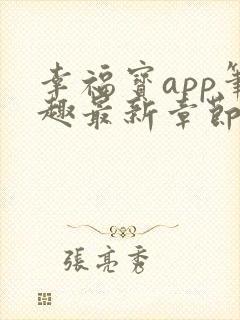 幸福寶app筆
趣最新章節
張亮秀